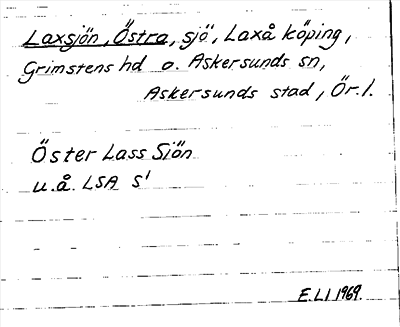 Laxsjön, Östra, sjö, Laxå köping,
Grimstens hd o. Askersunds sn,
Askersunds stad, Ör. l.
Öster Lass Siön
u.å. LSA S'
E.LI 1969.